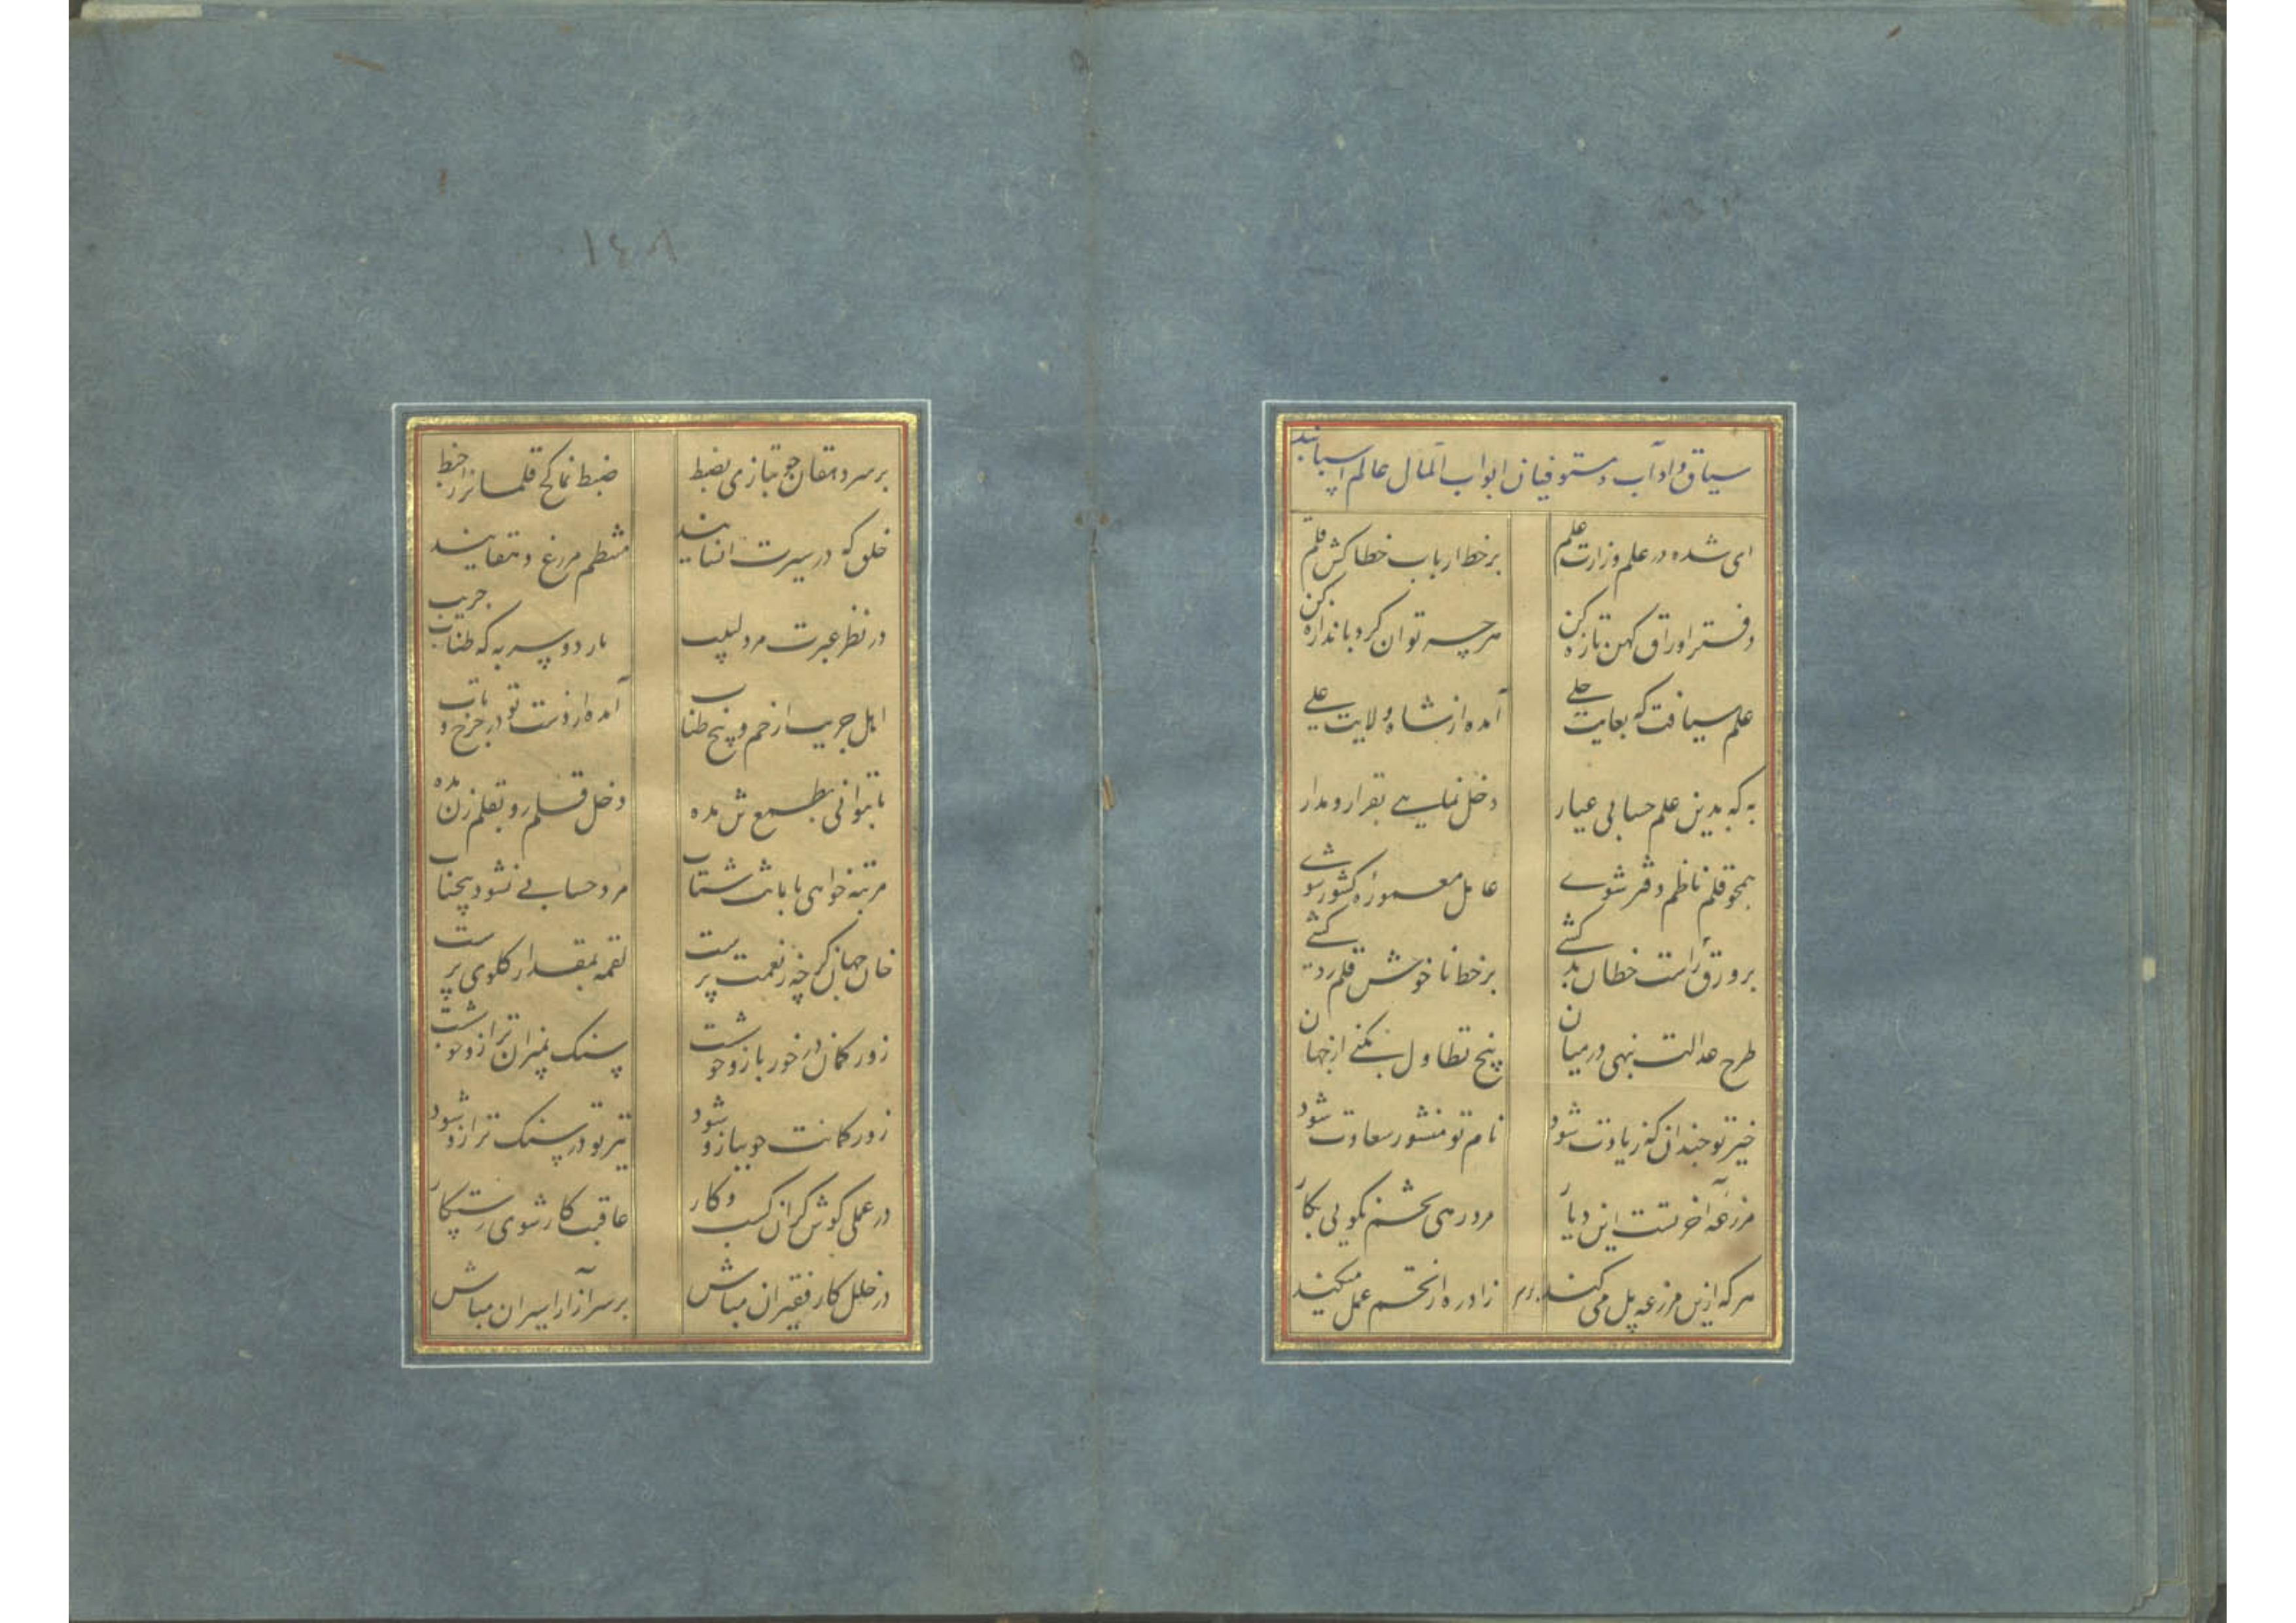 سیاق و آداب مستوفیان ابواب المال عالم
ای شده در علم وزارت علم برخط ارباب خطا کش قلم
دفتر اوراق کهن تازه کن هرچه توان کرد باندازه کن
علم سیاقت که بغایت جلی آمده از شاه ولایت علی
به که بدین علم حسابی عیار دخل نمایی بقرار و مدار
همچو قلم ناظم دفتر شوی عامل معموره کشور شوی
بر ورق راست خطان کشی برخط ناخوش قلم رد کشی
طرح عدالت بنهی در میان پنج تطاول بکنی از جهان
خیر تو چندان که زیادت شود نام تو منشور سعادت شود
مزرعه آخرتست این دیار مرد رهی تخم نکویی بکار
هرکه ازین مزرعه پل می کند زاد ره از تخم عمل میکند
۱۴۸
بر سر دهقان چو تبازی بضبط ضبط نما کج قلمانرا ز خبط
خلق که در سیرت انسانیند منتظم مزرع دهقانیند
در نظر عبرت مرد لبیب مار دو سر به که طناب جریب
اهل جریب از خم و پیچ طناب آمده از دست تو در چرخ و تاب
تا بتوانی بطمع تن مده دخل قلمرو بقلم زن مده
مرتبه خواهی بامانت شتاب مرد حسابی نشود بیحساب
خان جهان گرچه ز نعمت پرست لقمه بمقدار گلوی پرست
زور کمان در خور بازو خوشت سنگ بمیزان ترازو خوشت
زور کمانت چو ببازو شود تیر تو در سنگ ترازو شود
در عملی کوش کزان کسب و کار عاقبت کار شوی رستکار
در خلل کار فقیران مباش بر سر آزار اسیران مباش